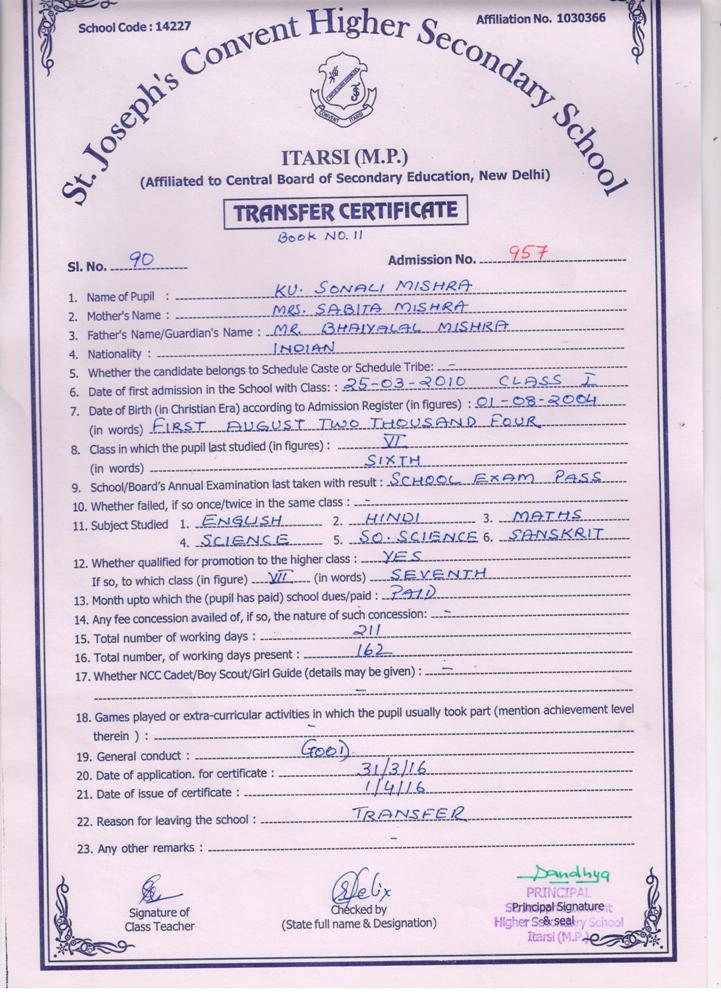 School Code : 14227
Affiliation No. 1030366
St. Joseph's Convent Higher Secondary School
CONVENT ITARSI
ITARSI (M.P.)
(Affiliated to Central Board of Secondary Education, New Delhi)
TRANSFER CERTIFICATE
BOOK NO. 11
Sl. No. 90 Admission No. 957
1. Name of Pupil : KU. SONALI MISHRA
2. Mother's Name : MRS. SABITA MISHRA
3. Father's Name/Guardian's Name : MR. BHAIYALAL MISHRA
4. Nationality : INDIAN
5. Whether the candidate belongs to Schedule Caste or Schedule Tribe: -
6. Date of first admission in the School with Class: : 25-03-2010 CLASS I
7. Date of Birth (in Christian Era) according to Admission Register (in figures) : 01-08-2004
(in words) FIRST AUGUST TWO THOUSAND FOUR
8. Class in which the pupil last studied (in figures) : VI
(in words) SIXTH
9. School/Board's Annual Examination last taken with result : SCHOOL EXAM PASS
10. Whether failed, if so once/twice in the same class : -
11. Subject Studied 1. ENGLISH 2. HINDI 3. MATHS
4. SCIENCE 5. SO. SCIENCE 6. SANSKRIT
12. Whether qualified for promotion to the higher class : YES
If so, to which class (in figure) VII (in words) SEVENTH
13. Month upto which the (pupil has paid) school dues/paid : PAID
14. Any fee concession availed of, if so, the nature of such concession: -
15. Total number of working days : 211
16. Total number, of working days present : 162
17. Whether NCC Cadet/Boy Scout/Girl Guide (details may be given) : -
-
18. Games played or extra-curricular activities in which the pupil usually took part (mention achievement level
therein ) : -
19. General conduct : GOOD
20. Date of application. for certificate : 31/3/16
21. Date of issue of certificate : 1/4/16
22. Reason for leaving the school : TRANSFER
23. Any other remarks : -
Signature of
Class Teacher
Felix
Checked by
(State full name & Designation)
Sandhya
PRINCIPAL
Principal Signature
& seal
Higher Secondary School
Itarsi (M.P.)